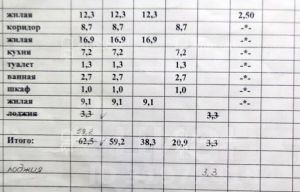 жилая 12,3 12,3 12,3 2,50
коридор 8,7 8,7 8,7 -*-
жилая 16,9 16,9 16,9 -*-
кухня 7,2 7,2 7,2 -*-
туалет 1,3 1,3 1,3 -*-
ванная 2,7 2,7 2,7 -*-
шкаф 1,0 1,0 1,0 -*-
жилая 9,1 9,1 9,1 -*-
лоджия 3,3 3,3
59,2
Итого: 62,5 59,2 38,3 20,9 3,3
лоджия 3,3